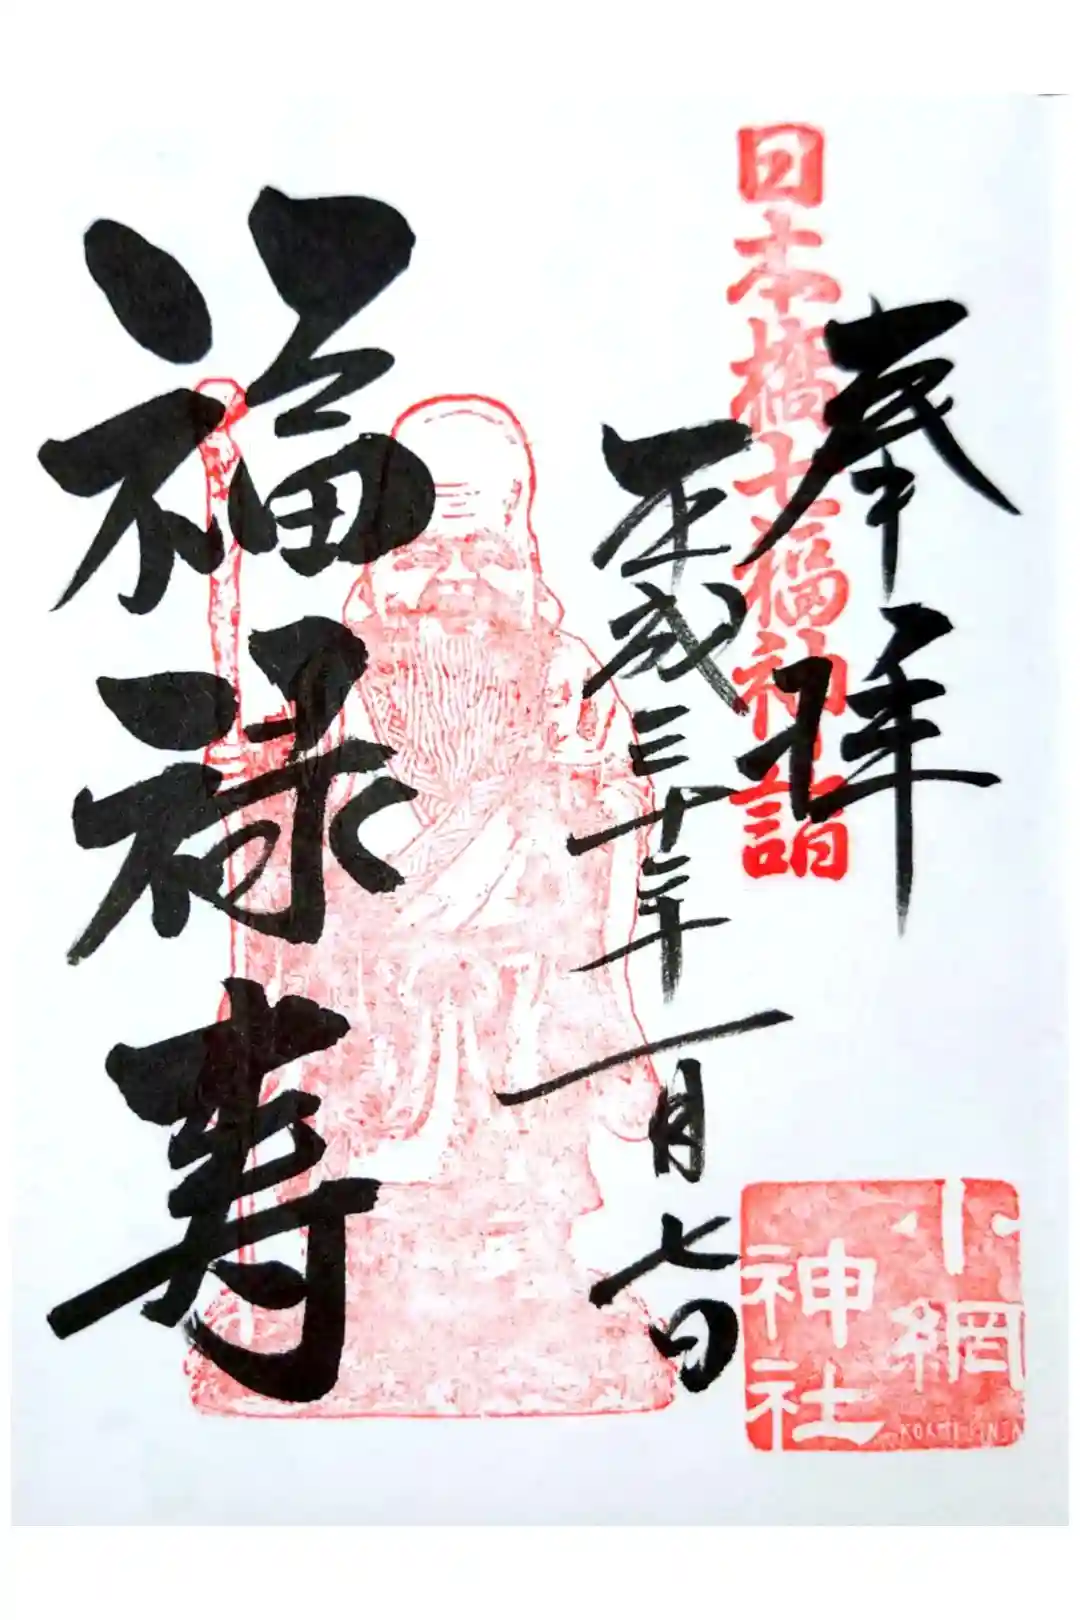 奉拝
日本橋七福神詣
平成三十年一月七日
福禄寿
小網
神社
KOAMI JINJA